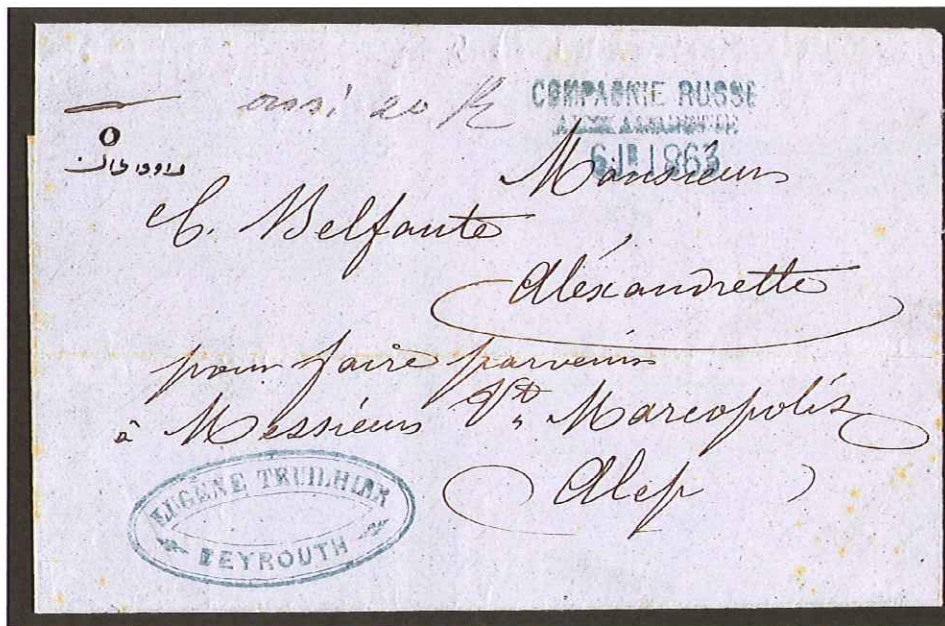 COMPAGNIE RUSSE
ALEXANDRETTE
1863
Monsieur
C. Belfante
Aléxandrette
pour faire parvenir
à Messieurs Marcopolis
Alep
EUGÈNE TRUILHIER
BEYROUTH